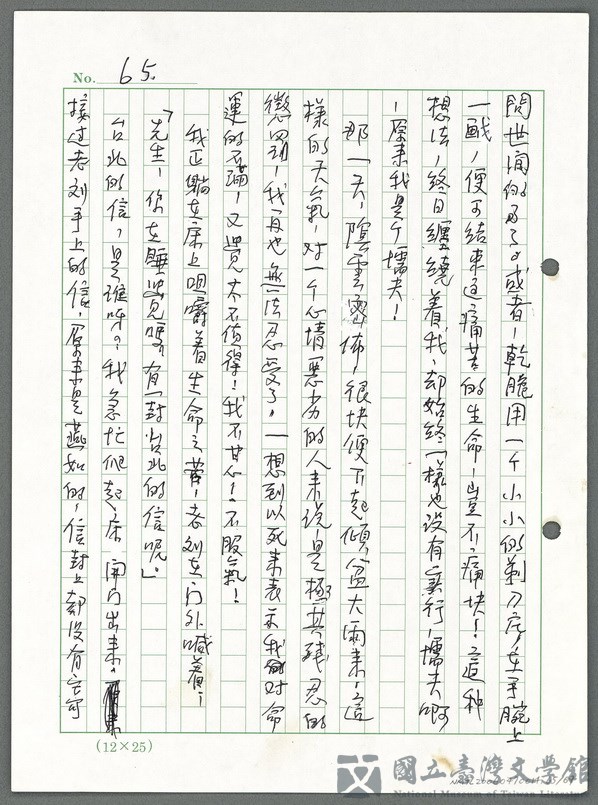 No. 65.
問世間的事了。或者，乾脆用一个小小的剃刀片，在手腕上
一戩，便可結束這痛苦的生命，豈不痛快！這種
想法，終日纏繞着我，却始終一樣也沒有實行，懦夫啊
，原来我是个懦夫！
那一天，陰雲密佈，很快便下起傾盆大雨来，這
樣的天氣，对一个心情惡劣的人来說，是極其殘忍的
懲罰，我再也無法忍受了。一想到以死来表示我对命
運的不滿，又覺太不值得！我不甘心！不服氣！
我正躺在床上咀嚼着生命之苦，老刘在门外喊着，
「先生，你在睡覺嗎？有一封台北的信呢。」
台北的信，是誰呀？我急忙爬起床，開门出来。
接过老刘手上的信，原来是燕如的，信封上却沒有它可
(12×25)
國立臺灣文學館
National Museum of Taiwan Literature